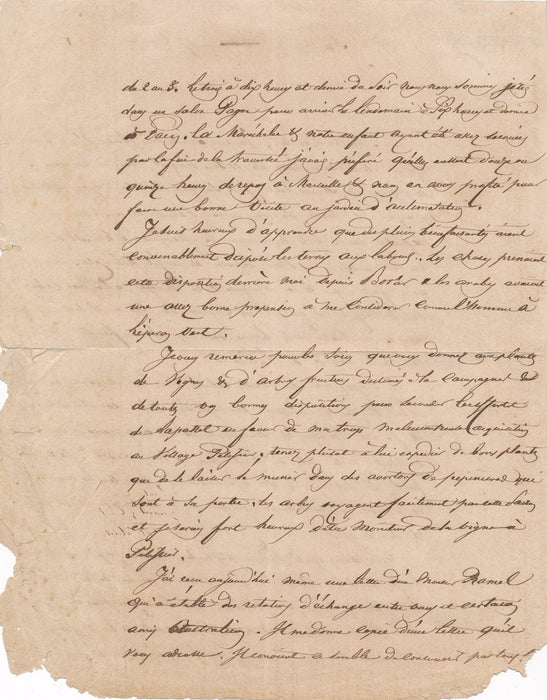 de 2 au 3. Le train à dix heures et demie du soir nous nous sommes jetés
dans un salon pour arriver le lendemain à six heures et demie
à Paris. La Maréchale & notre enfant ayant été assez
par la fin de la traversée j'avais préféré qu'elles eussent douze ou
quinze heures de repos à Marseille & nous en avons profité pour
faire une bonne visite au jardin d'acclimatation.
Je suis heureux d'apprendre que des pluies bienfaisantes aient
convenablement disposé les terres aux labours. Les choses prenaient
cette disposition derrière moi depuis & les arabes avaient
une assez bonne propension à me considérer comme l'homme à
l'éperon vert.
Je vous remercie pour les soins que vous donnez aux plants
de vignes & d'arbres fruitiers destinés à la campagne &
de toutes vos bonnes dispositions pour seconder les efforts
de Lapasset en faveur de ma trop malencontreuse acquisition
au village Pelissier, tenez plutôt à lui expédier de bons plants
que de le laisser se munir dans des avortons de pépinières qui
sont à sa portée. Les arbres voyagent facilement par cette saison
et je serais fort heureux d'être moniteur de la vigne à
Pelissier.
J'ai reçu aujourd'hui même une lettre du Monsieur Ramel
qui a établi des relations d'échange entre vous et certains
amis Australiens. Il me donne copie d'une lettre qu'il
vous adresse. Il convient ce semble de concourir par tous